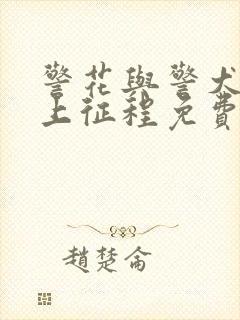 警花與警犬
上征程免費
趙楚侖